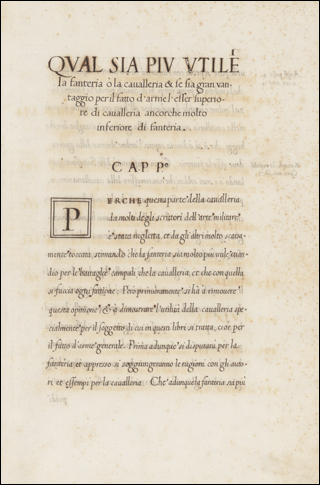 QVAL SIA PIV VTILE
la fanteria ò la cavalleria & se sia gran van-
taggio per il fatto d'arme l'esser superio-
re di cavalleria ancorche molto
inferiore di fanteria.
CAP P°
PERCHE questa parte della cavalleria
da molti degli scrittori dell'arte militare
è stata negletta, et da gli altri molto scarsa-
mente toccata, stimando che la fanteria sia molto piu utile, etian-
dio per le battaglie campali, che la cavalleria, et che con quella
si faccia ogni fattione. Però primieramente si hà à rimovere
questa opinione & à dimostrare l'utilità della cavalleria spe-
cialmente per il soggetto di cui in questi libri si tratta, cioè per
il fatto d'arme generale. Prima adunque si disputarà per la
fanteria et appresso si soggiungeranno le ragioni con gli auto-
ri et essempi per la cavalleria. Che adunque la fanteria sia più